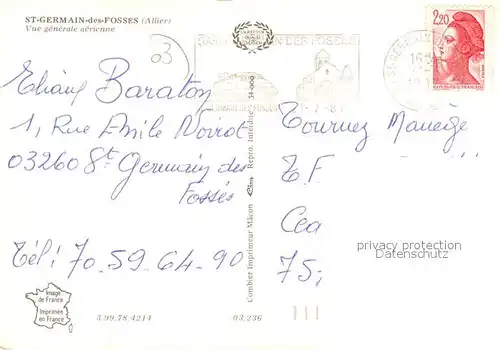 ST-GERMAIN-des-FOSSES (Allier)
Vue générale aérienne
03
2,20
REPUBLIQUE FRANÇAISE
Eliane Baraton
1, Rue Emile Noirot
03260 St Germain des
Fossés
Tél: 70-59-64-90
Combier Imprimeur Mâcon
Repro. Interdite
Tournez Manège
T F
Cea
75;
privacy protection
Datenschutz
Image
de France
Imprimée
en France
3 99.78 4214
03.236